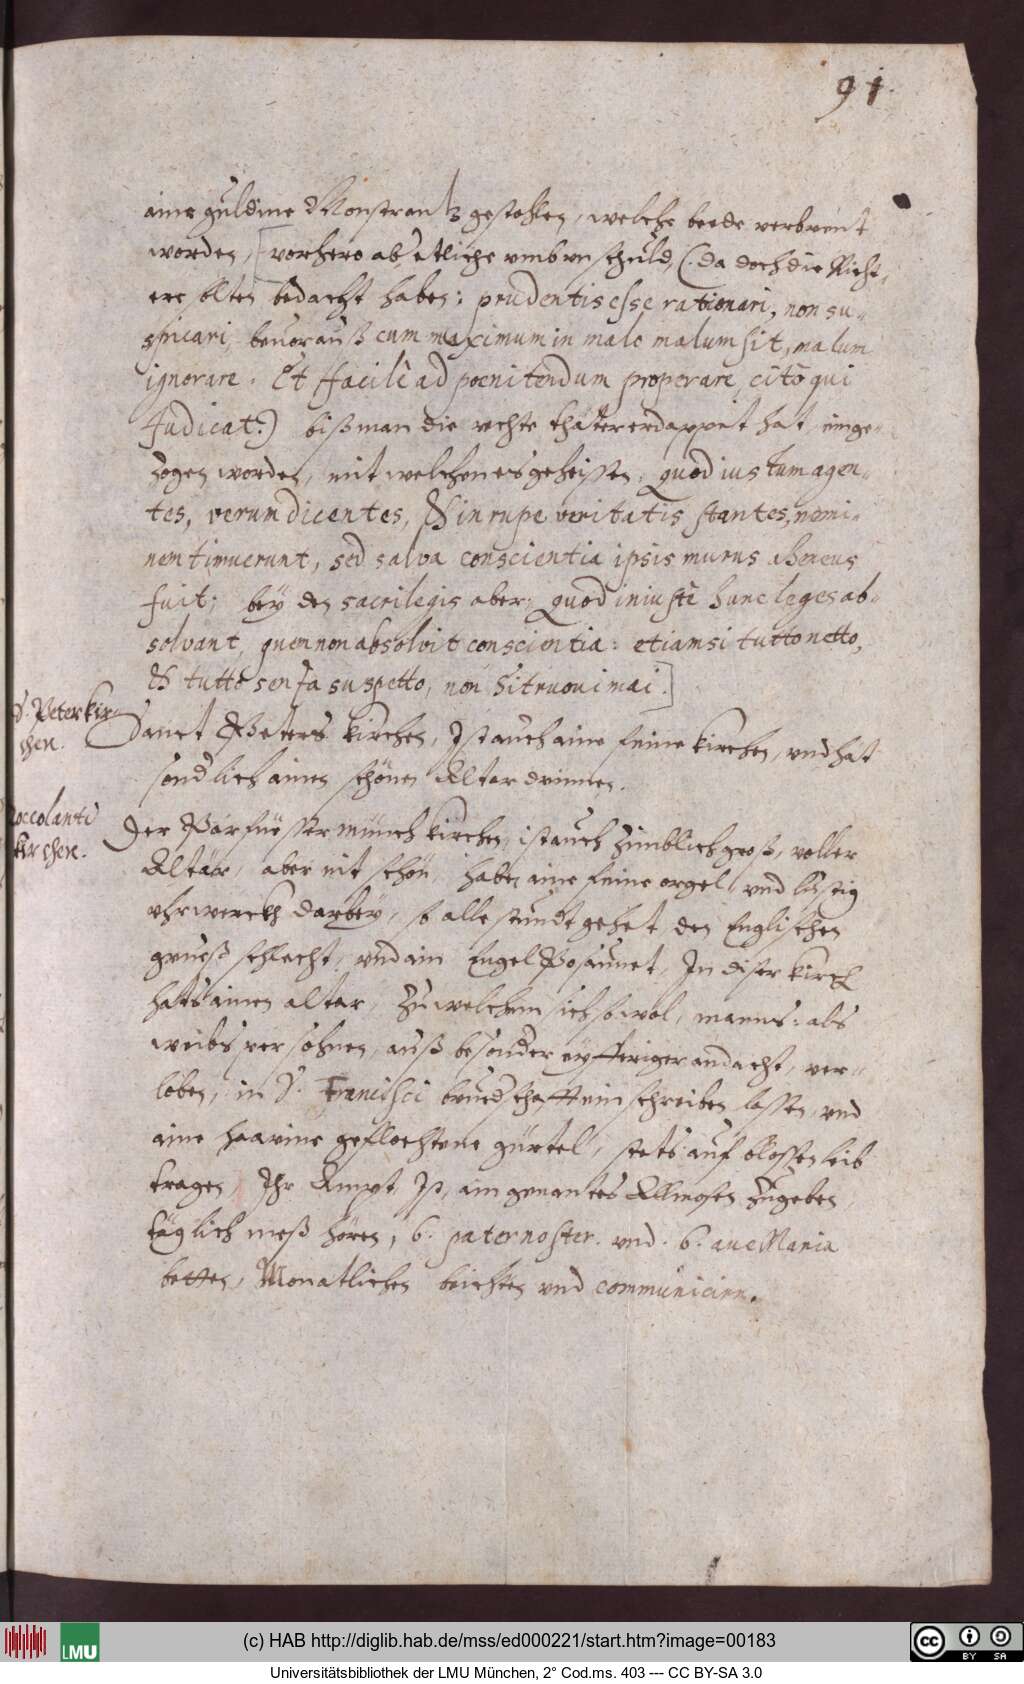 91
aine guldine Monstrantz gestohlen, welche beede verbrent
worden, [vorhero ab etliche umb unschuld, (da doch die Richt,
ere solten bedacht haben: prudentis esse rationari, non su-
spicari, beuorauß cum maximum in malo malum sit, malum
ignorare. Et ffacilè ad poenitendum properare, citò qui
Judicat:) biß man die rechte thäter erdappet hat, einge-
zogen worden, mit welchen es geheissen, quod iustum agen-
tes, verum dicentes, & in rupe veritatis stantes, nemi-
nem timuerunt, sed salva conscientia ipsis murus aheneus
fuit; bey den sacrilegis aber, quod iniustè hunc leges ab-
solvant, quem non absolvit conscientia: etiamsi tutto netto,
& tutto senza suspetto, non si truoui mai.]
S. Peter kir-
chen.
Sanct Peters kirchen, Ist auch aine feine kirchen, und hat
sondlich ainen schönen Altar drinnen.
Zoccolanti
kirchen.
Der Parfuesser münch kirchen, ist auch zimblich groß, voller
Altär, aber nit schön, haben aine feine orgel, und lustig
uhrwerckh darbey, so alle stundt gehet, den Englischen
grueß schlecht, und ain Engel Posaunet, In diser kirch
hats ainen altar, zu welchem sich sowol, manns: als
weibs persohnen, auß besonder eyfferiger andacht, ver-
loben, in S. Francisci bruedschafft einschreiben lassen, und
aine haarine geflochtene gürtel, stets auf blossen leib
tragen, Ihr Ampt, Ist, ain genantes Allmosen zugeben,
täglich meß hören, 6. paternoster. und. 6. aue Maria
betten, Monatlichen beichten und communiciern.
(c) HAB http://diglib.hab.de/mss/ed000221/start.htm?image=00183
LMU
cc BY SA
Universitätsbibliothek der LMU München, 2° Cod.ms. 403 --- CC BY-SA 3.0